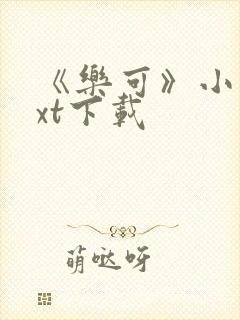 《樂可》小
xt下載
萌哒呀